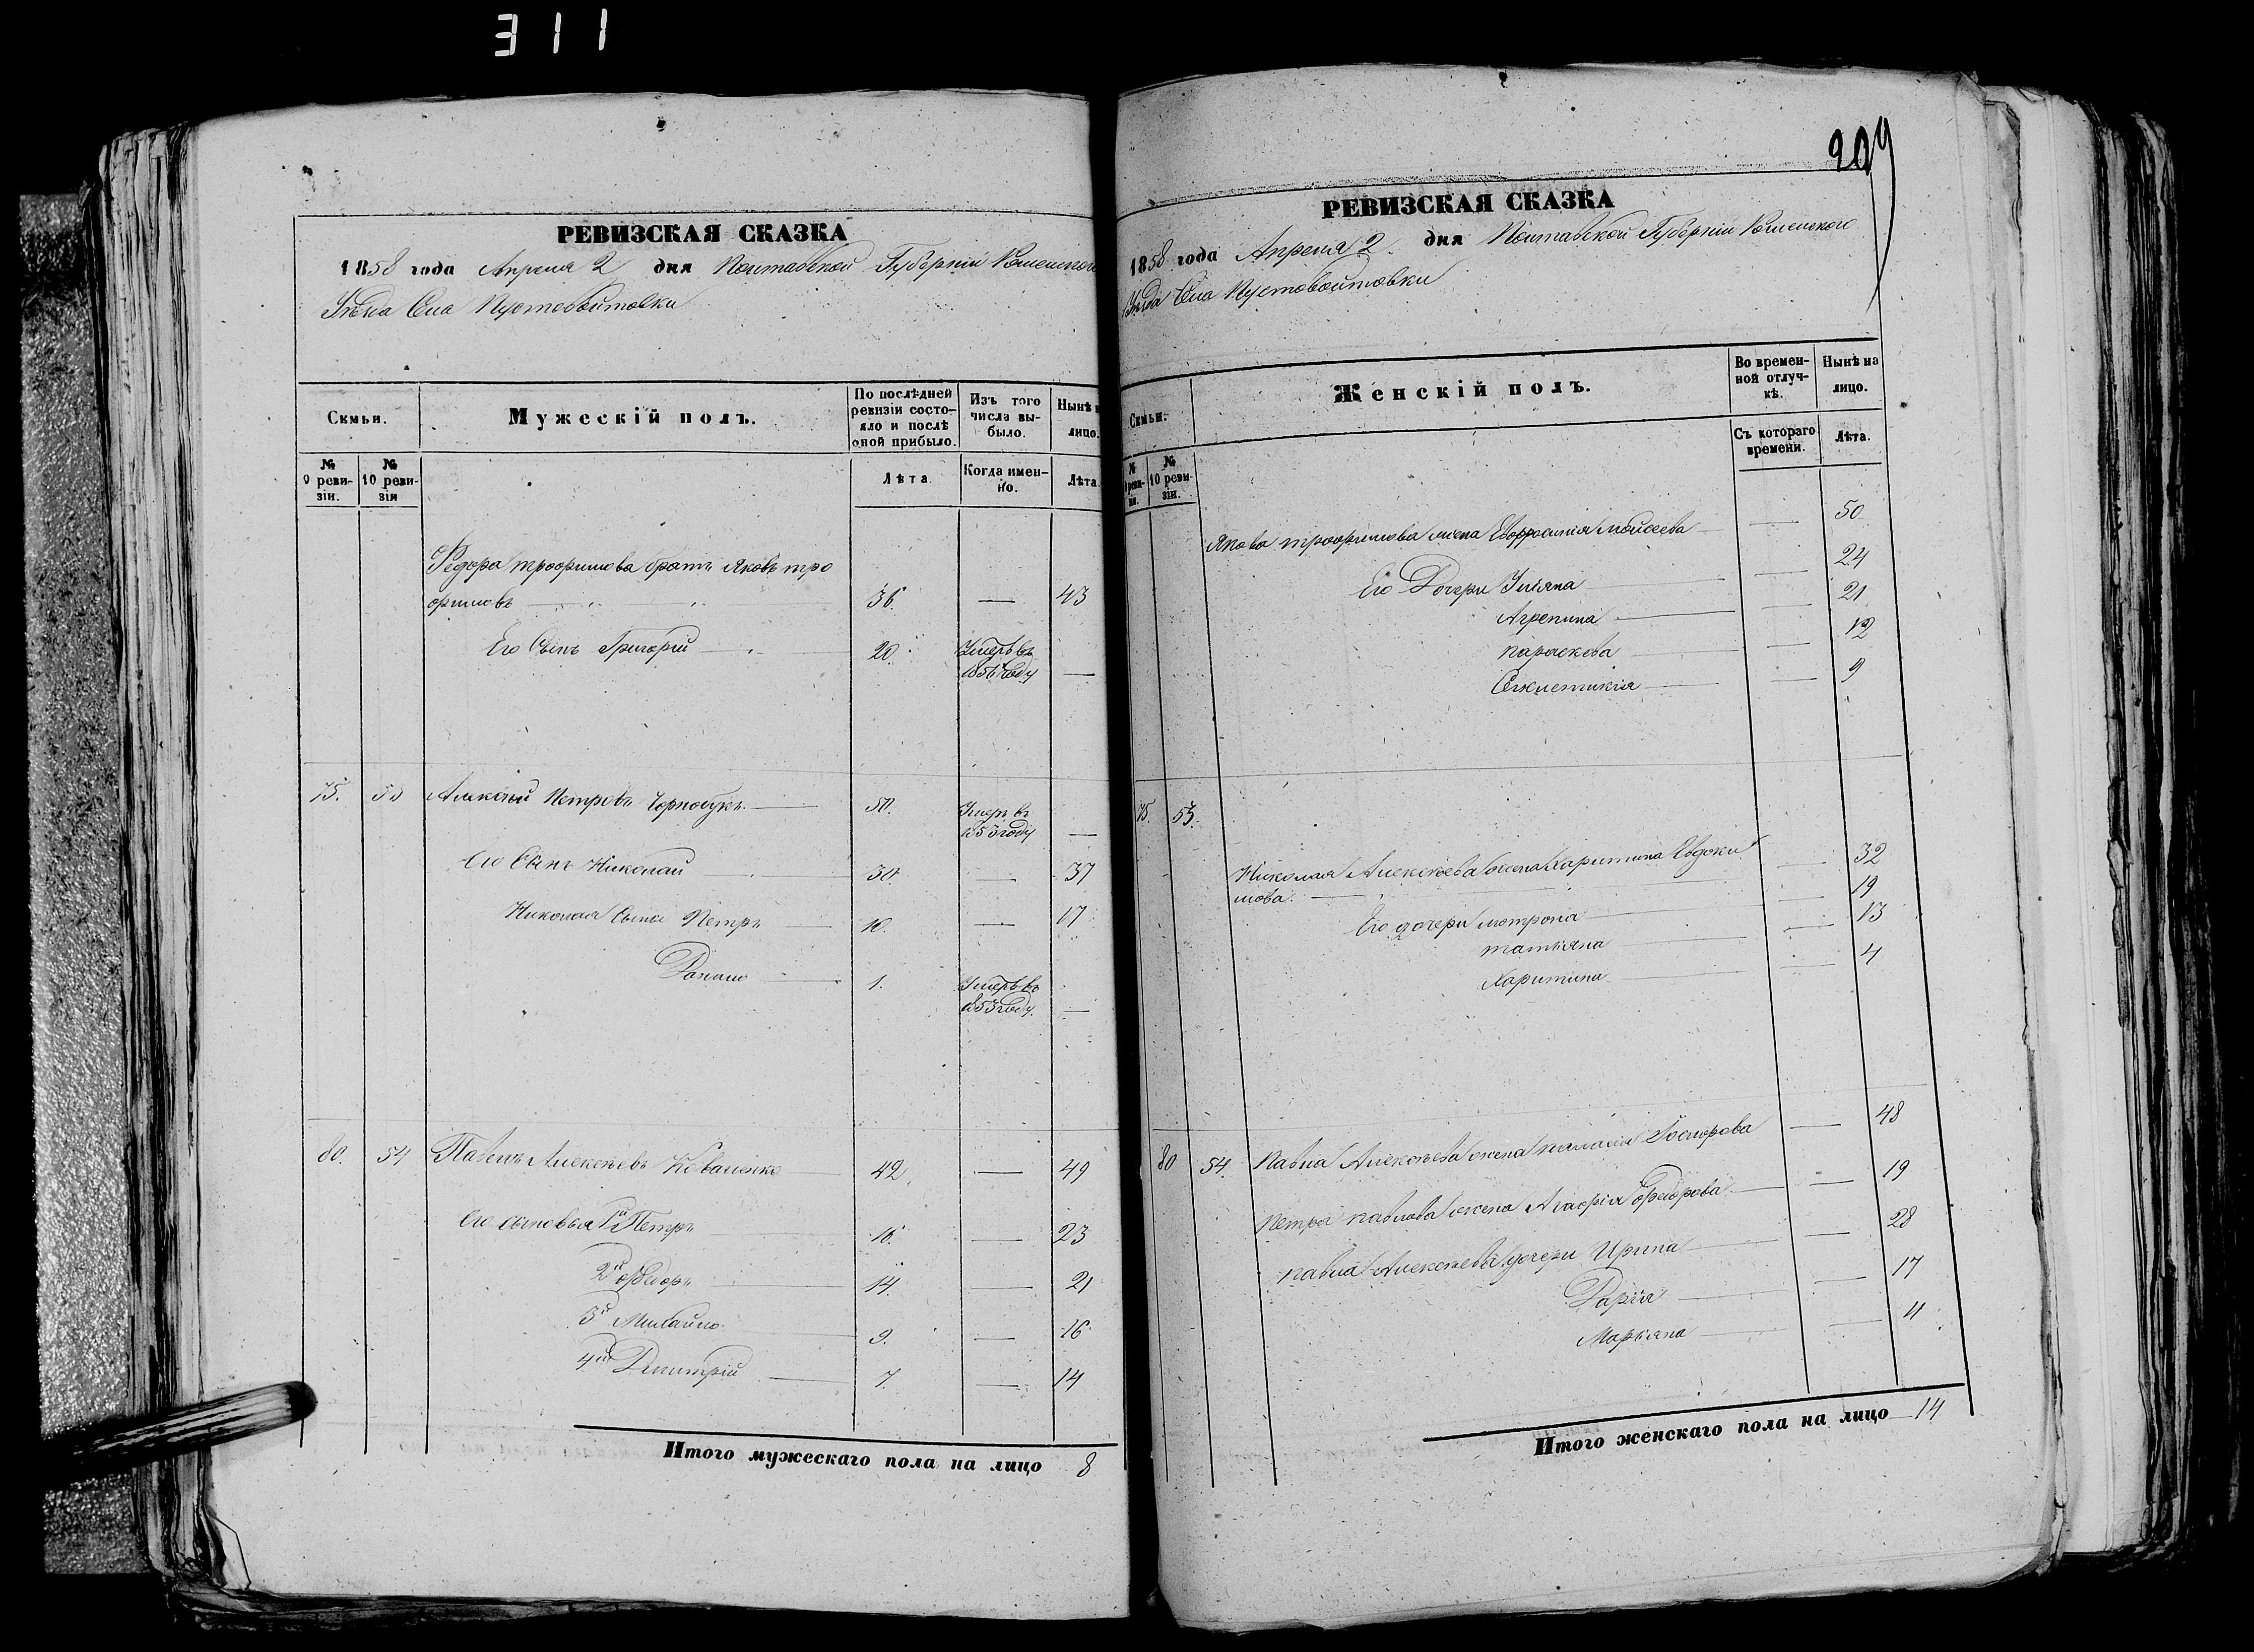 311
РЕВИЗСКАЯ СКАЗКА
1858 года Апреля 2 дня Полтавской Губерніи Роменского
Уѣзда Села Пустовойтовки
Семьи.
Мужескій полъ.
По послѣдней ревизіи состояло и послѣ оной прибыло.
Изъ того числа выбыло.
Нынѣ на лицо.
№ 9 ревизіи.
№ 10 ревизія
Лѣта
Когда именно.
Лѣта.
Федора трофимова братъ Яковъ тро
фимовъ 36. — 43
Его Сынъ Григорій 20. Умеръ въ
185 году —
75. 53 Алексѣй Петровъ 50. Умеръ въ
1853 году —
Его Сынъ Николай 30. — 37
Николая Сыны Петръ 10. — 17
Данило 1. Умеръ въ
1853 году. —
80. 54 Павелъ Алексѣевъ Коваленко 42. — 49
Его сыновья 1й Петръ 16. — 23
2й Федоръ 14. — 21
3й Михайло 9. — 16
4й Дмитрій 7. — 14
Итого мужескаго пола на лицо 8
209
РЕВИЗСКАЯ СКАЗКА
1858 года Апреля 2 дня Полтавской Губерніи Роменского
Уѣзда Села Пустовойтовки
Семьи.
Женскій полъ.
Во временной отлучкѣ.
Нынѣ на лицо.
№ 9 ревизіи.
№ 10 ревизіи.
Съ котораго времени.
Лѣта.
Якова трофимова жена Евфросинія Моисеева — 50
Его Дочери Уліяна — 24
Агрепина — 21
параскева — 12
Сенклетикія — 9
75. 53.
Николая Алексѣева жена Харитина Евдоки
мова. — 32
Его дочери мотрона — 19
татіяна — 13
Харитина — 4
80 54. Павла Алексѣева жена пелагія — 48
Петра павлова жена Агафія Федорова — 19
павла Алексѣева дочери Ирина — 28
Дарія — 17
Маріяна — 11
Итого женскаго пола на лицо 14